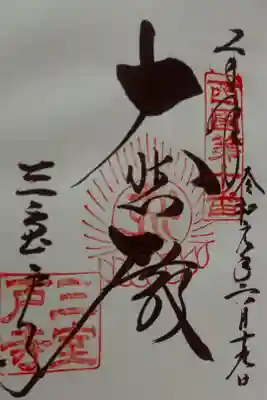 西国第十番
令和元年六月十
大悲殿
三室戸寺
三室戸寺